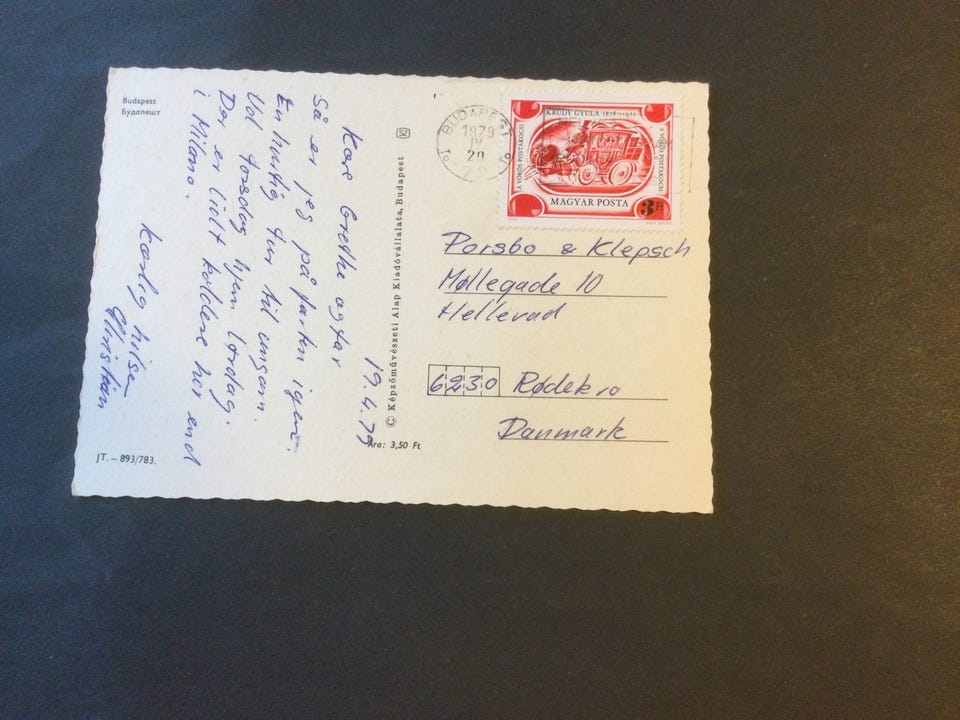 Budapest
Будапешт
19.4.79
Kære Grethe og far
Så er jeg på farten igen.
En hurtig tur til ungarn.
Ud torsdag hjem lørdag.
Der er lidt koldere her end
i Milano.
Kærlig hilsen
Christian
JT. – 893/783.
© Képzőművészeti Alap Kiadóvállalata, Budapest
Ára: 3,50 Ft
BUDAPEST
1979 IV 20
KRÚDY GYULA 1878–1933
A VÖRÖS POSTAKOCSI
A VÖRÖS POSTAKOCSI
MAGYAR POSTA
3 Ft
Porsbo & Klepsch
Møllegade 10
Hellevad
6230 Rødekro
Danmark